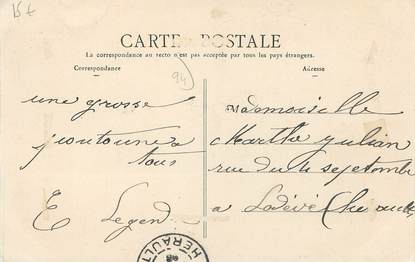 15 €
CARTE POSTALE
La correspondance au recto n'est pas acceptée par tous les pays étrangers.
Correspondance
Adresse
94
une grosse
tous
E Legend
Mademoiselle
Marthe Julian
rue du 4 septembre
a Lodève (Herault)
HERAULT